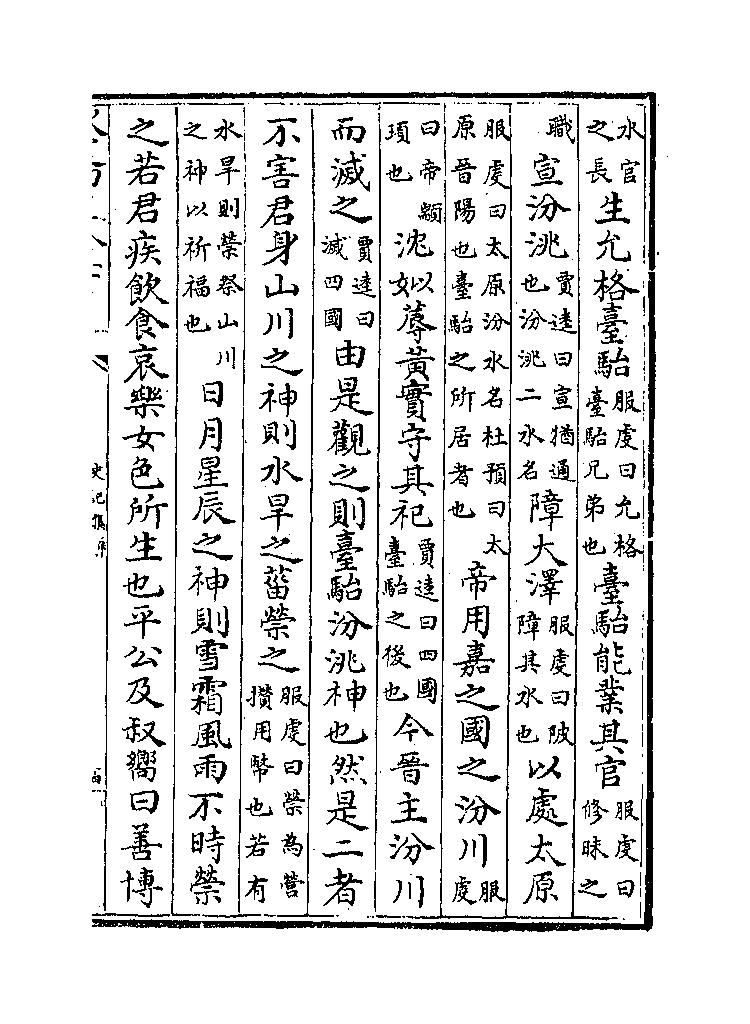 水官之長生允格臺駘服虔曰允格臺駘兄弟也臺駘能業其官服虔曰修昧之
職宣汾洮賈逵曰宣猶通也汾洮二水名障大澤服虔曰陂障其水也以處太原
服虔曰太原汾水名杜預曰太原晉陽也臺駘之所居者也帝用嘉之國之汾川服虔
曰帝顓頊也沈姒蓐黃實守其祀賈逵曰四國臺駘之後也今晉主汾川
而滅之賈逵曰滅四國由是觀之則臺駘汾洮神也然是二者
不害君身山川之神則水旱之菑禜之服虔曰禜為營攢用幣也若有
水旱則禜祭山川之神以祈福也日月星辰之神則雪霜風雨不時禜
之若君疾飲食哀樂女色所生也平公及叔嚮曰善博
史記集解